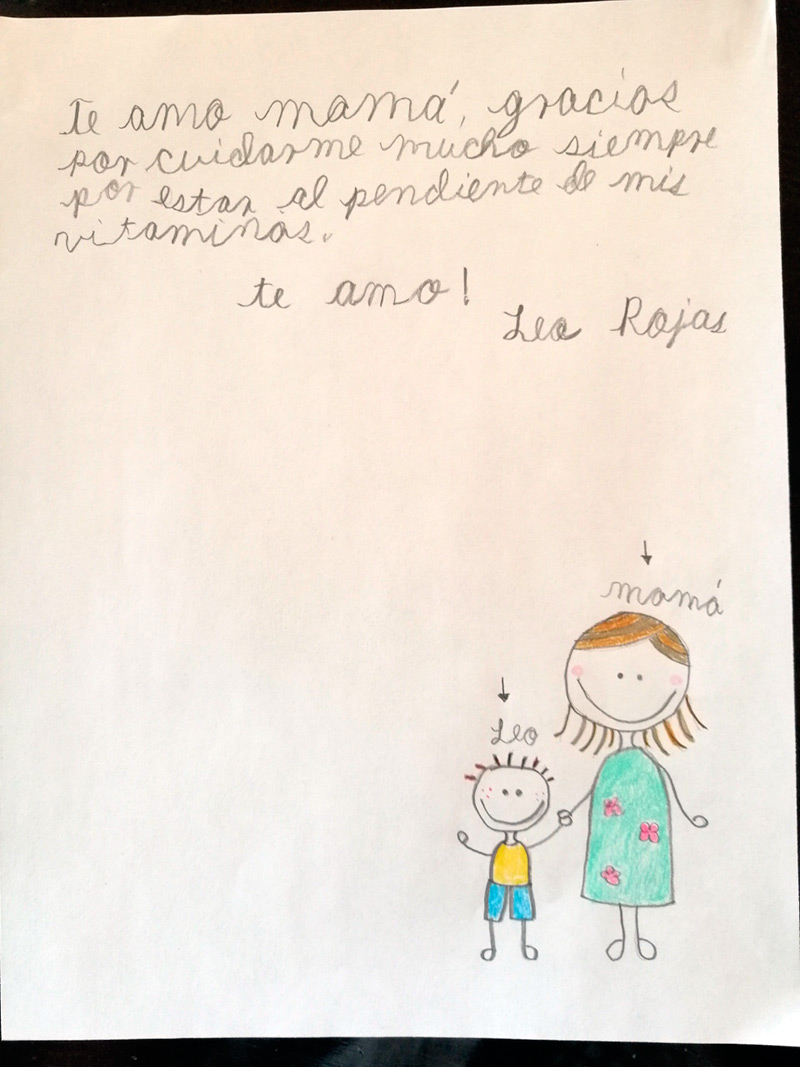 Te amo mamá, gracias
por cuidarme mucho siempre
por estar al pendiente de mis
vitaminas.
te amo!
Leo Rojas
mamá
Leo